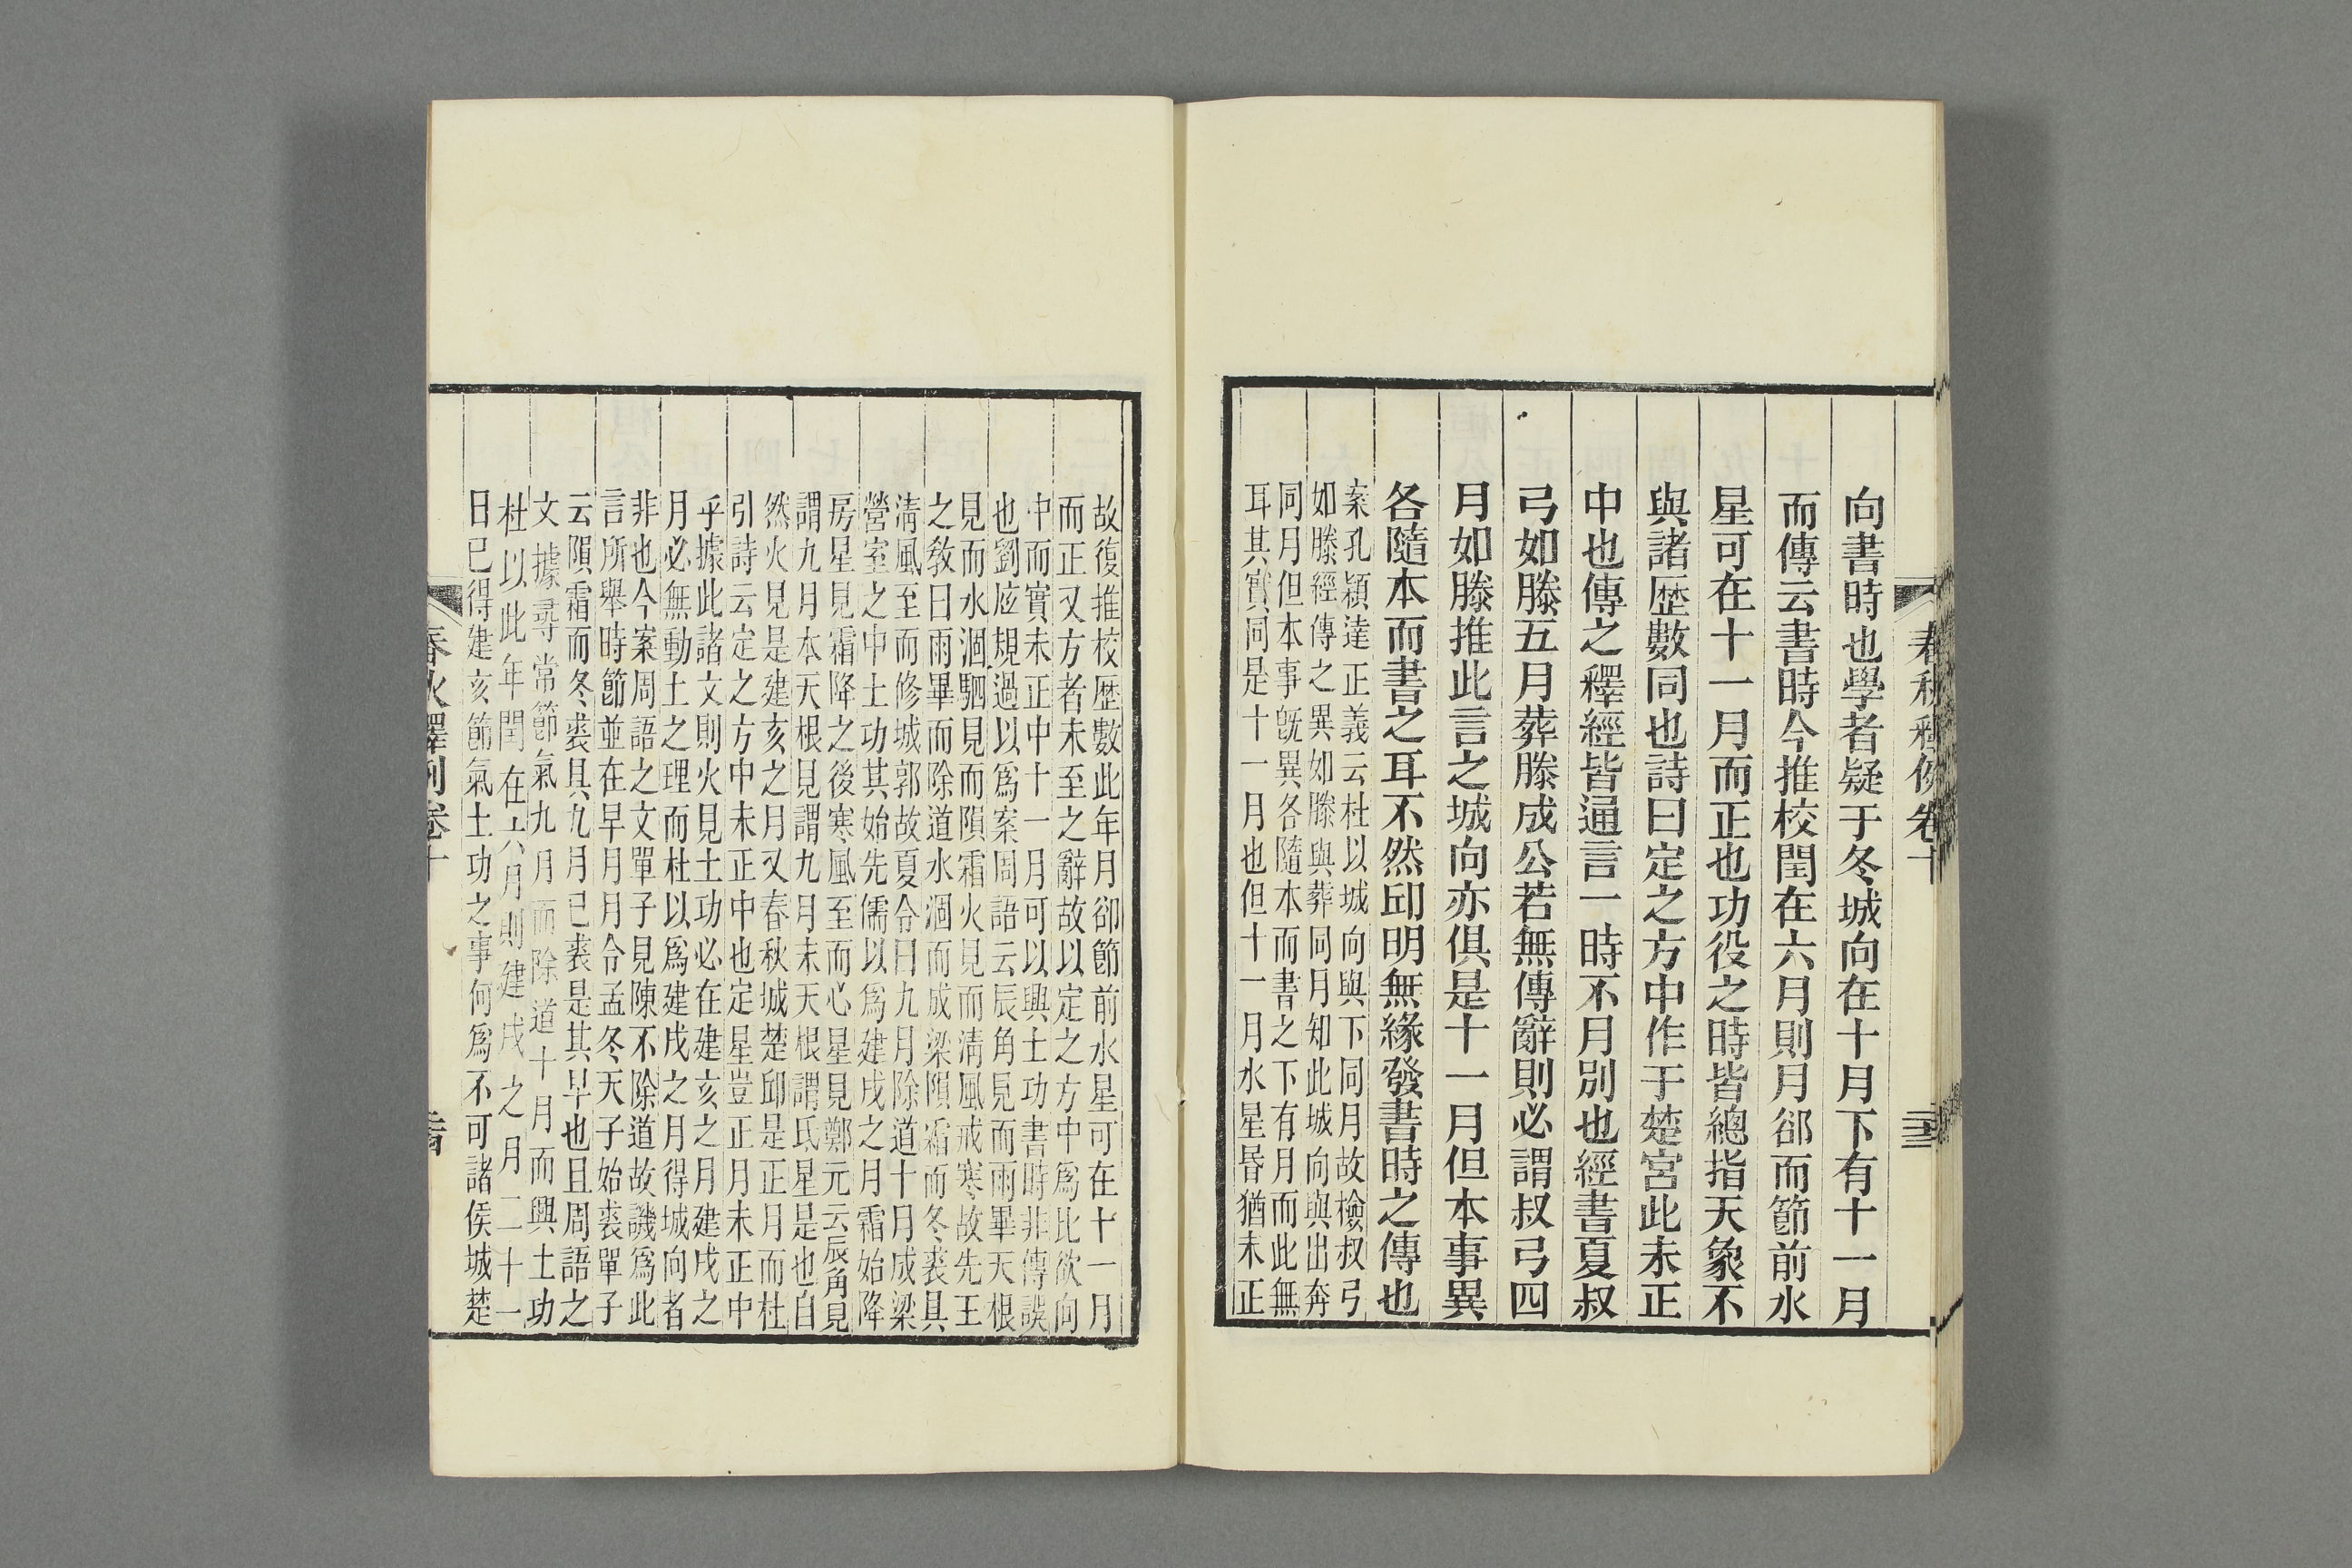 春秋釋例卷十
向書時也學者疑于冬城向在十月下有十一月
而傳云書時今推校閏在六月則月郤而節前水
星可在十一月而正也功役之時皆總指天象不
與諸歴數同也詩曰定之方中作于楚宮此未正
中也傳之釋經皆通言一時不月別也經書夏叔
弓如滕五月葬滕成公若無傳辭則必謂叔弓四
月如滕推此言之城向亦俱是十一月但本事異
各隨本而書之耳不然邱明無緣發書時之傳也
案孔穎達正義云杜以城向與下同月故檢叔弓
如滕經傳之異如滕與葬同月知此城向與出奔
同月但本事旣異各隨本而書之下有月而此無
耳其實同是十一月也但十一月水星昬猶未正
故復推校歴數此年月卻節前水星可在十一月
而正又方者未至之辭故以定之方中爲比欲向
中而實未正中十一月可以興土功書時非傳誤
也劉庻規過以爲案周語云辰角見而雨畢天根
見而水涸駟見而隕霜火見而淸風戒寒故先王
之敎曰雨畢而除道水涸而成梁隕霜而冬裘具
淸風至而修城郭故夏令曰九月除道十月成梁
營室之中土功其始先儒以爲建戌之月霜始降
房星見霜降之後寒風至而心星見鄭元云辰角見
謂九月本天根見謂九月末天根謂氐星是也自
然火見是建亥之月又春秋城楚邱是正月而杜
引詩云定之方中未正中也定星豈正月未正中
乎據此諸文則火見土功必在建亥之月建戌之
月必無動土之理而杜以爲建戌之月得城向者
非也今案周語之文單子見陳不除道故譏爲此
言所舉時節並在早月月令孟冬天子始裘單子
云隕霜而冬裘具九月已裘是其早也且周語之
文據尋常節氣九月而除道十月而興土功
杜以此年閏在六月則建戌之月二十一
日已得建亥節氣土功之事何爲不可諸侯城楚
春秋釋例卷十